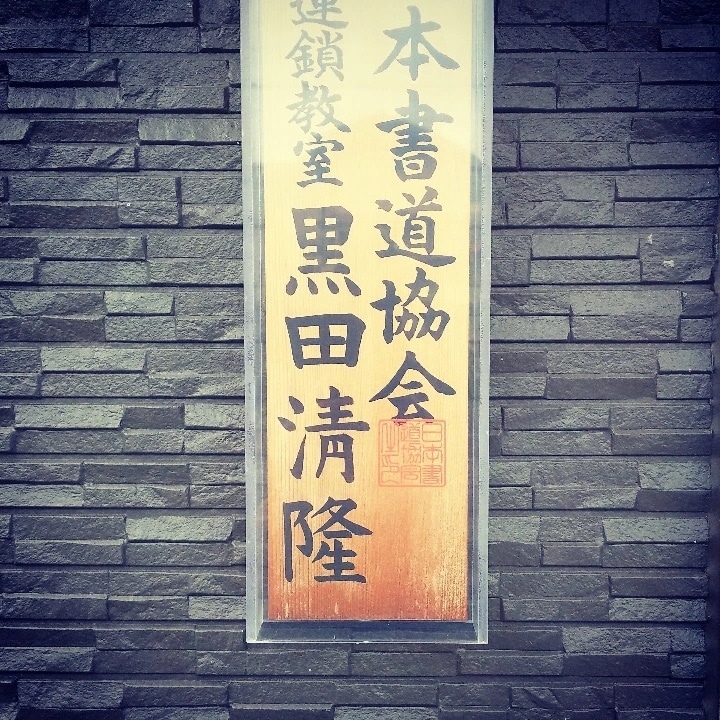 本書道協会
連鎖教室 黒田清隆
日本書
道協会
之印